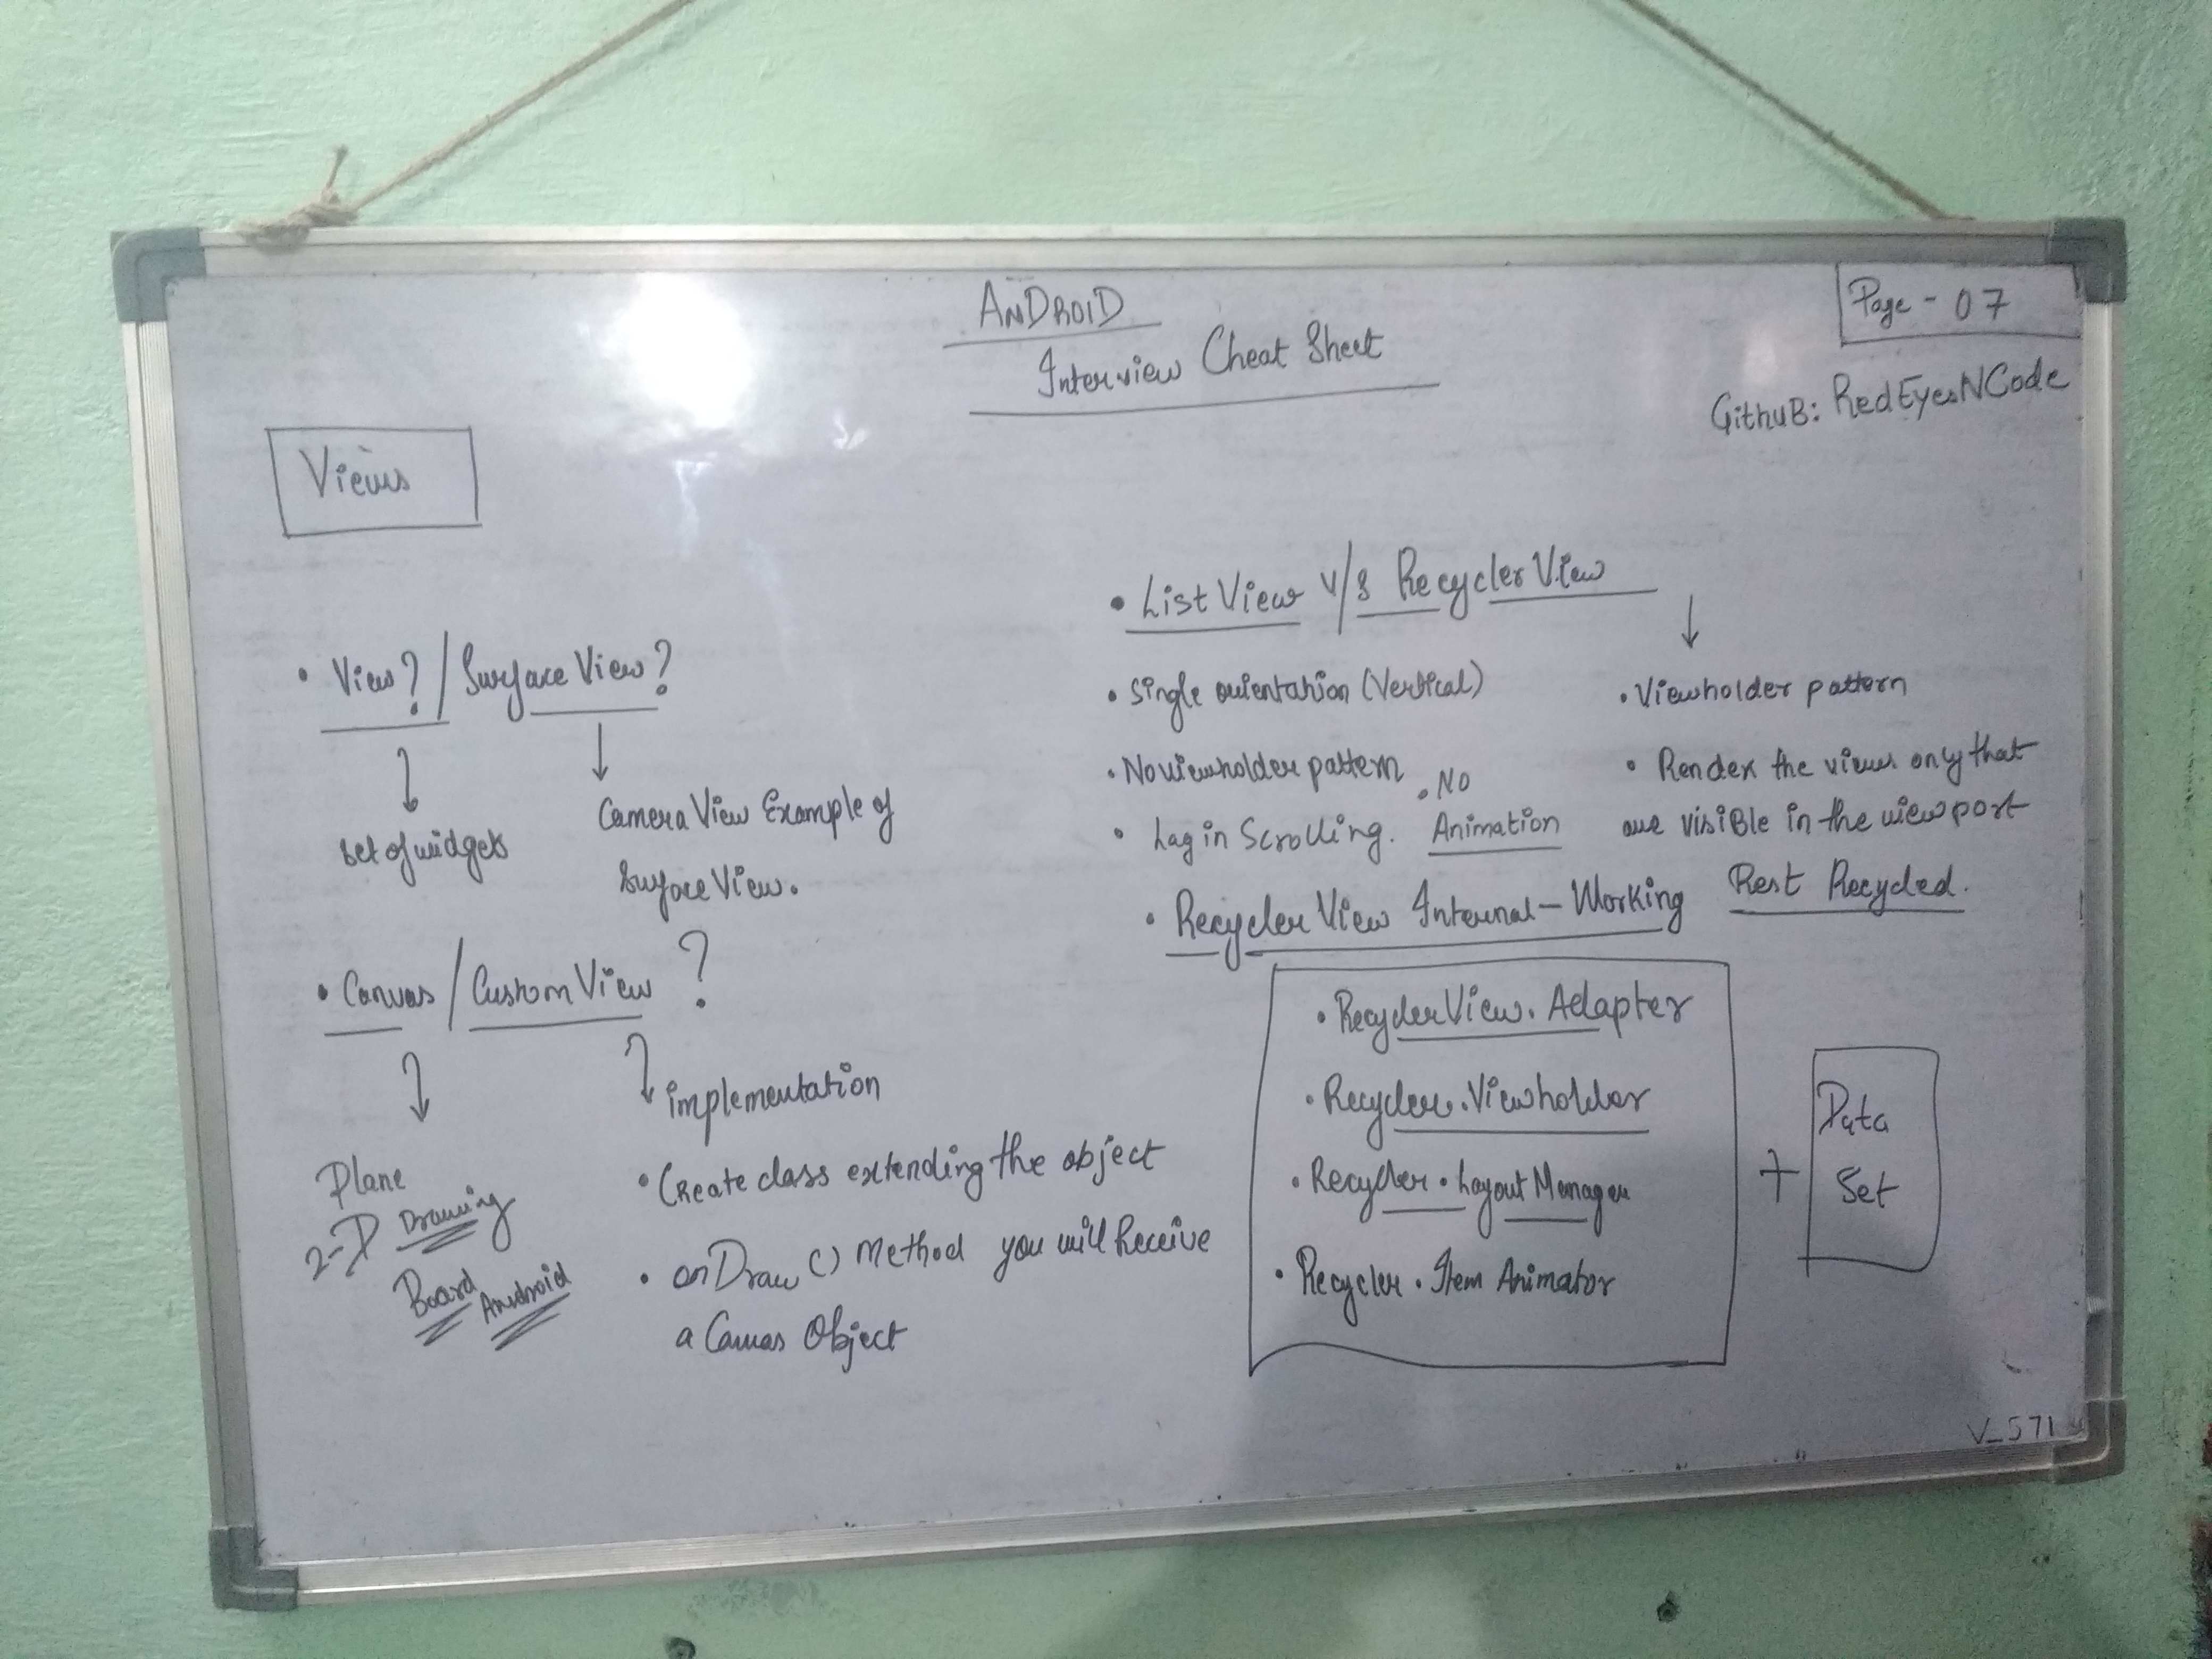 ANDROID
Interview Cheat Sheet
Page - 07
GithuB: RedEyesNCode
Views
• View? / Surface View?
set of widgets
Camera View Example of
Surface View.
• Canvas / Custom View ?
Plane
2-D Drawing
Board Android
implementation
• Create class extending the object
• onDraw () Method you will Receive
a Canvas Object
• List View v/s Recycler View
• Single orientation (Vertical)
• No viewholder pattern
• Lag in Scrolling.
• No
Animation
• Viewholder pattern
• Render the views only that
are visible in the viewport
Rest Recycled.
• Recycler View Internal - Working
• RecyclerView. Adapter
• Recycler. Viewholder
• Recycler. Layout Manager
• Recycler. Item Animator
+
Data
Set
V_571